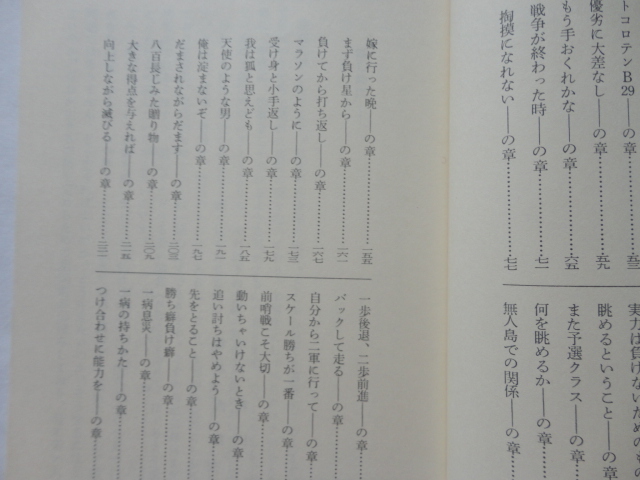 トコロテンB29――の章…………五三
優劣に大差なし――の章…………五九
もう手おくれかな――の章…………六五
戦争が終わった時――の章…………七一
掏摸になれない――の章…………七七
実力は負けないためのもの
眺めるということ――の章
また予選クラス――の章
何を眺めるか――の章
無人島での関係――の章
嫁に行った晩――の章…………一五五
まず負け星から――の章…………一六一
負けてから打ち返し――の章…………一六七
マラソンのように――の章…………一七三
受け身と小手返し――の章…………一七九
我は狐と思えども――の章…………一八五
天使のような男――の章…………一九一
俺は淀まないぞ――の章…………一九七
だまされながらだます――の章…………二〇三
八百長じみた贈り物――の章…………二〇九
大きな得点を与えれば――の章…………二一五
向上しながら滅びる――の章…………二二一
一歩後退、二歩前進――の章
バックして走る――の章
自分から二軍に行って――の章
スケール勝ちが一番――の章
前哨戦こそ大切――の章
動いちゃいけないとき――の章
追い討ちはやめよう――の章
先をとること――の章
勝ち癖負け癖――の章
一病息災――の章
一病の持ちかた――の章
つけ合わせに能力を――の章